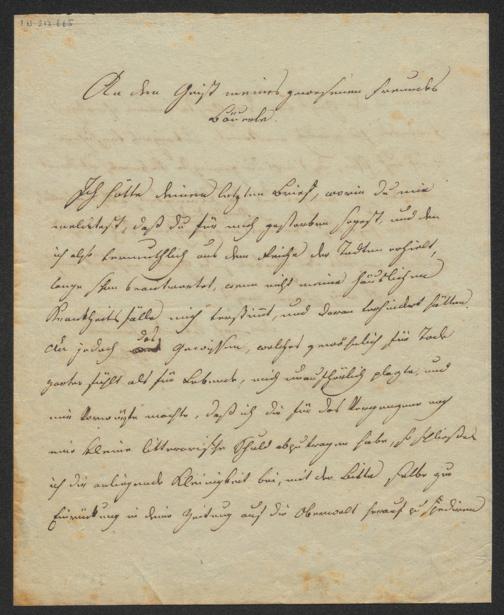 An den Geist meines gewesenen Freundes
Bäuerle.
Ich hätte deinen letzten Brief, worin du mir
meldetest, daß du für mich gestorben seyest, und den
ich also vermuthlich aus dem Reiche der Todten erhielt,
lange schon beantwortet, wenn nicht meine häuslichen
Krankheitsfälle mich verstimmt, und daran verhindert hätten.
Da jedoch das Gewissen, welches gewöhnlich für Todte
zarter fühlt als für Lebende, mich unaufhörlich plagte, und
mir Vorwürfe machte, daß ich dir für das Vergangene noch
eine kleine litterarische Schuld abzutragen habe, so schließe
ich dir anliegende Kleinigkeit bei, mit der Bitte selbe zur
Einrückung in deine Zeitung auf die Oberwelt herauf zu spediren